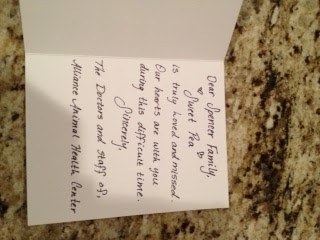 Dear Spencer Family,
♥ Sweet Pea ♥
is truly loved and missed.
Our hearts are with you
during this difficult time.
Sincerely,
The Doctors and Staff of,
Alliance Animal Health Center